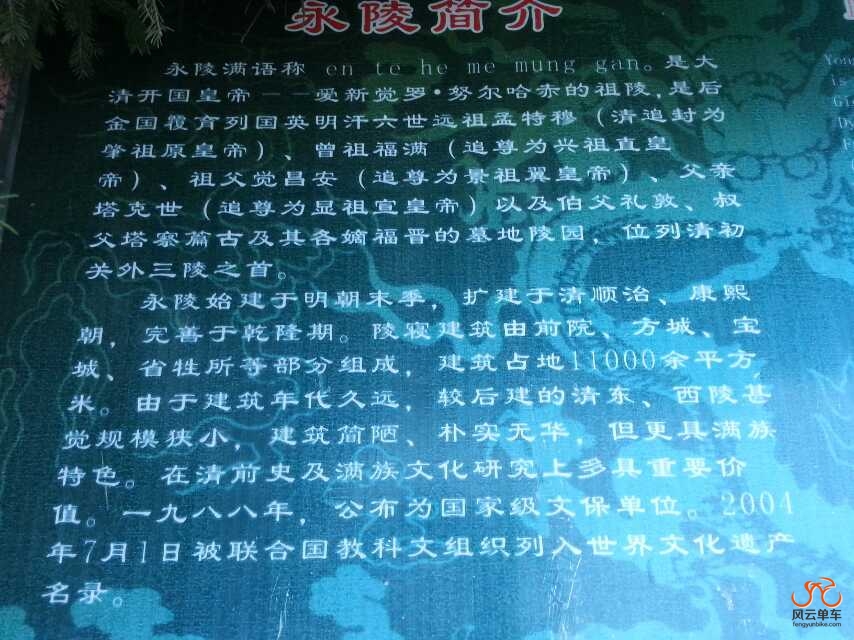 永陵简介
永陵满语称 en te he me mung gan。是大
清开国皇帝——爱新觉罗·努尔哈赤的祖陵,是后
金国覆育列国英明汗六世远祖孟特穆（清追封为
肇祖原皇帝）、曾祖福满（追尊为兴祖直皇
帝）、祖父觉昌安（追尊为景祖翼皇帝）、父亲
塔克世（追尊为显祖宣皇帝）以及伯父礼敦、叔
父塔察篇古及其各嫡福晋的墓地陵园，位列清初
关外三陵之首。
永陵始建于明朝末季，扩建于清顺治、康熙
朝，完善于乾隆期。陵寝建筑由前院、方城、宝
城、省牲所等部分组成，建筑占地11000余平方
米。由于建筑年代久远，较后建的清东、西陵甚
觉规模狭小，建筑简陋、朴实无华，但更具满族
特色。在清前史及满族文化研究上多具重要价
值。一九八八年，公布为国家级文保单位。2004
年7月1日被联合国教科文组织列入世界文化遗产
名录。
Yong
is
Gi
Dy
F
风云单车
fengyunbike.com